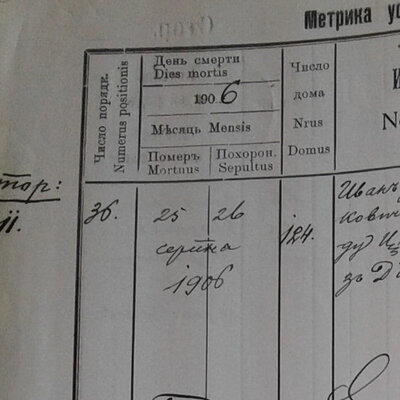 Метрика
Число порядк.
Numerus positionis
День смерти
Dies mortis
1906
Мѣсяць Mensis
Померъ
Mortuus
Похорон.
Sepultus
Число
дома
Nrus
Domus
36.
25
26
серпня
1906
124.
Иванъ
ду
зъ